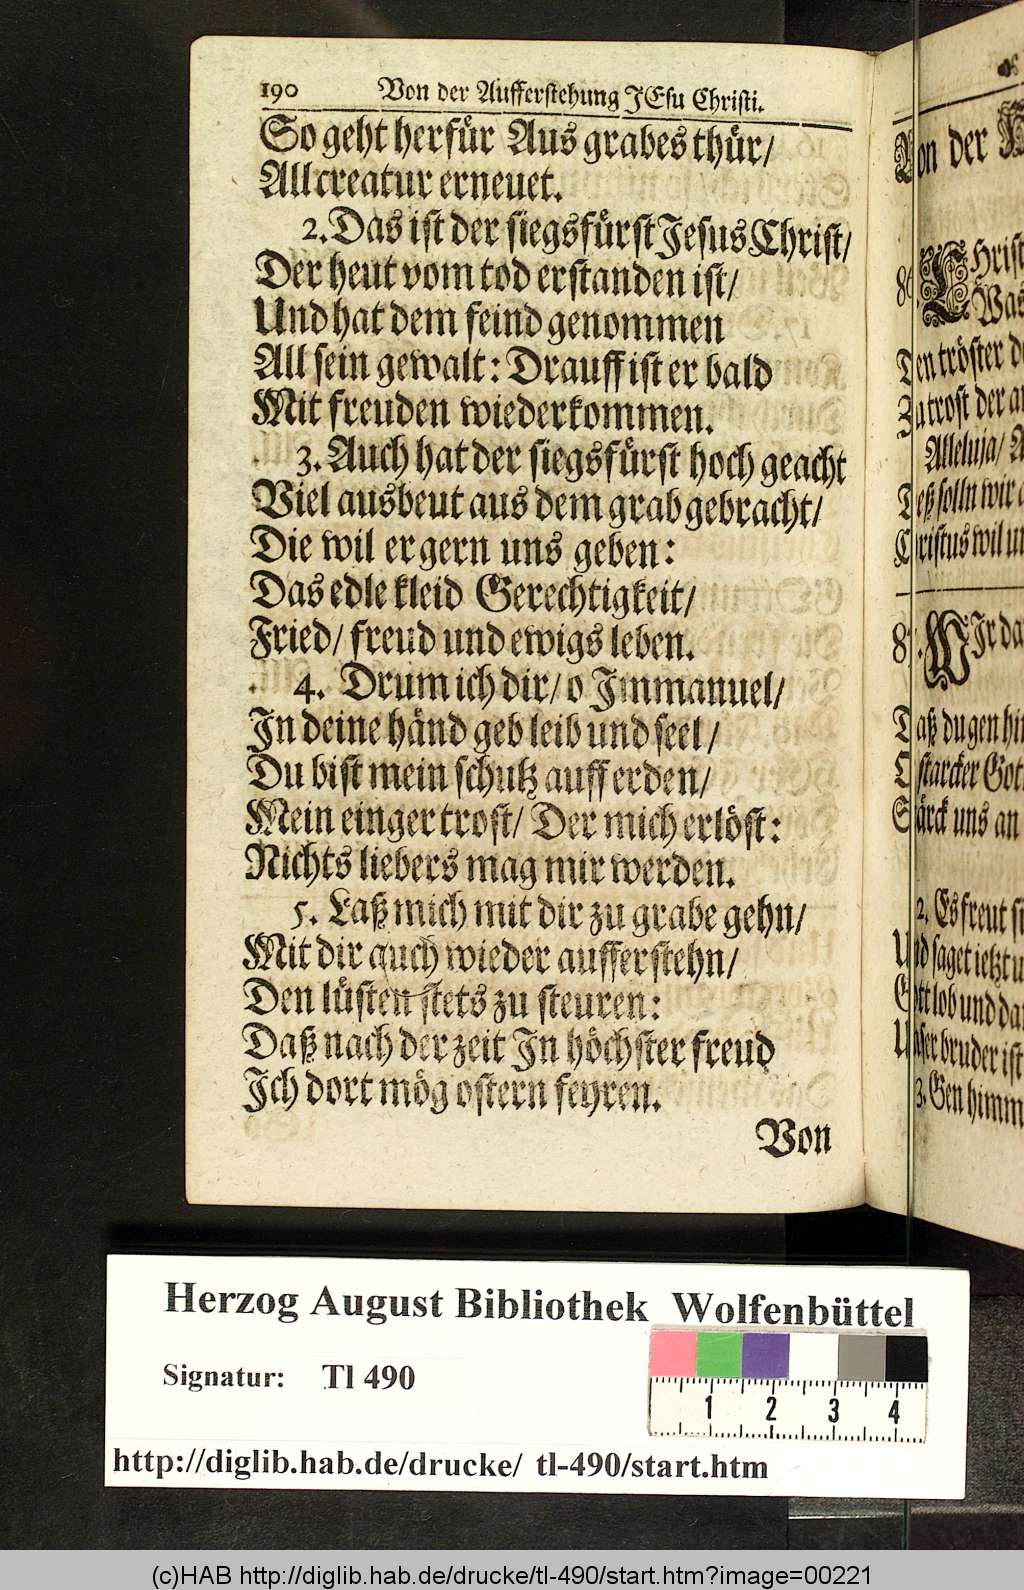 190 Von der Aufferstehung JEsu Christi.
So geht herfür Aus grabes thür/
All creatur erneuet.
2. Das ist der siegsfürst Jesus Christ/
Der heut vom tod erstanden ist/
Und hat dem feind genommen
All sein gewalt: Drauff ist er bald
Mit freuden wiederkommen.
3. Auch hat der siegsfürst hoch geacht
Viel ausbeut aus dem grab gebracht/
Die wil er gern uns geben:
Das edle kleid Gerechtigkeit/
Fried/ freud und ewigs leben.
4. Drum ich dir/ o Immanuel/
In deine händ geb leib und seel/
Du bist mein schutz auff erden/
Mein einger trost/ Der mich erlöst:
Nichts liebers mag mir werden.
5. Laß mich mit dir zu grabe gehn/
Mit dir auch wieder aufferstehn/
Den lüsten stets zu steuren:
Daß nach der zeit In höchster freud
Ich dort mög ostern feyren.
Von
Von der
CHrist
Was
Den tröster
Zu trost der
Alleluja/
Deß solln wir
Christus wil
WIr da
Daß du gen
O starcker Gott
Stärck uns an
2. Es freut
Und saget ietzt
Gott lob und
Unser bruder ist
3. Gen himm
Herzog August Bibliothek Wolfenbüttel
Signatur: Tl 490
1 2 3 4
http://diglib.hab.de/drucke/ tl-490/start.htm
(c)HAB http://diglib.hab.de/drucke/tl-490/start.htm?image=00221